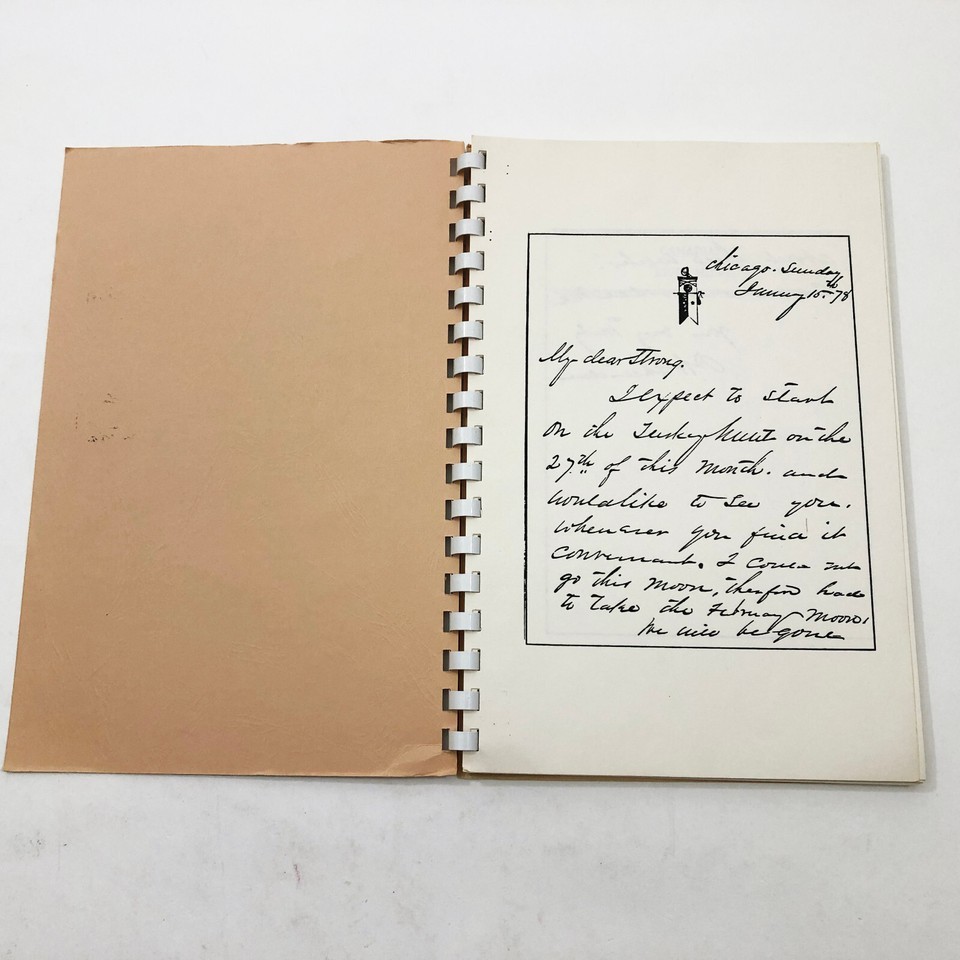 Chicago. Sunday
January 15th 78
My dear Strong.
I expect to start
on the Turkey Hunt on the
27th of this month. and
would like to see you.
whenever you find it
convenient. I could not
go this moon, therefore had
to take the February moon.
We will be gone